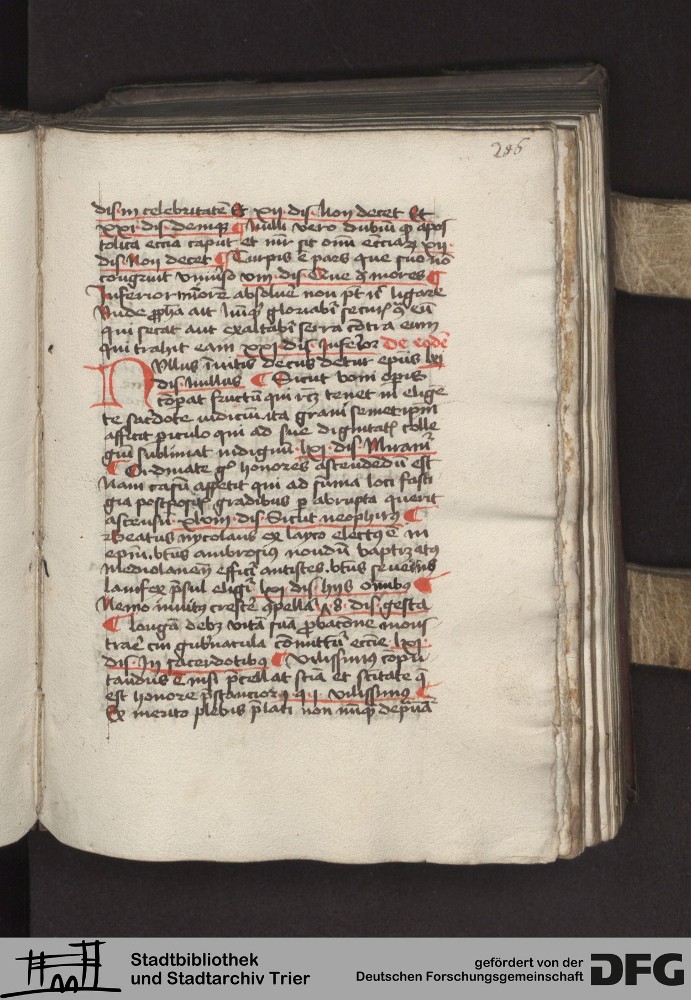 286
dis. in celebritatē Et xii. dis. Non decet Et
xxi. dis. deniqꝫ ¶ Nulli vero dubiū qꝫ apos
tolica eccīa caput et mr̄ sit om̄iū ecclīaꝝ xii.
dis. Non decet ¶ Turpis ē pars que suo nō
congruit vniuso viii. dis. Que q̄ mores ¶
Inferior maiorē absoluē non pt̄ ligare
Vnde ꝓpha ait Nūqꝫ gloriabit̄ secur̄ ꝯ eū
qui secat aut exaltabit̄ serra cōtra eum
qui trahit eam xxi. dis. Inferior De eodē
Nullus īuitis decus detur ep̄us lxi
dis. Nullus ¶ Sicut boni op̄is
cōpat fructū qui rc̄m tenet in elige
te sac̄dote iudiciū ita graui semetip̄m
afficit piculo qui ad sue dignitat̄ colle
giū sublimat indignū lxi. dis. Miramur
¶ Ordinate gͦ honores ascendedū est
Nam casū appetit qui ad sūma loci fasti
gia postpositis gradibus p abrupta querit
ascensū. xlviii. dis. Sicut neophitus ¶
Beatus nycolaus ex layco electꝯ ē in
ep̄m. btūs ambrosius nondū baptizatꝯ
mediolanen̄ efficit̄ antistes. btūs seuerinꝯ
lanifex p̄sul eligit̄ lxi dis. hijs om̄ibꝫ ¶
Nemo inuitꝯ crescē ꝯpellat̄ 8. dis. gesta
¶ longā debꝫ vitā suā ꝓbacōne mons
trare cui gub̄nacula cōmittūt̄ ecc̄ie. lxi.
dis. In sacerdotibꝫ ¶ Vilissimꝯ cōpu
tandus ē nisi p̄cellat sc̄ia et sc̄titate q̄
est honore p̄stancior i. q. i. Vilissimus ¶
Ex merito plebis p̄lati non nūqꝫ depūāt̄
Stadtbibliothek
und Stadtarchiv Trier
gefördert von der
Deutschen Forschungsgemeinschaft
DFG